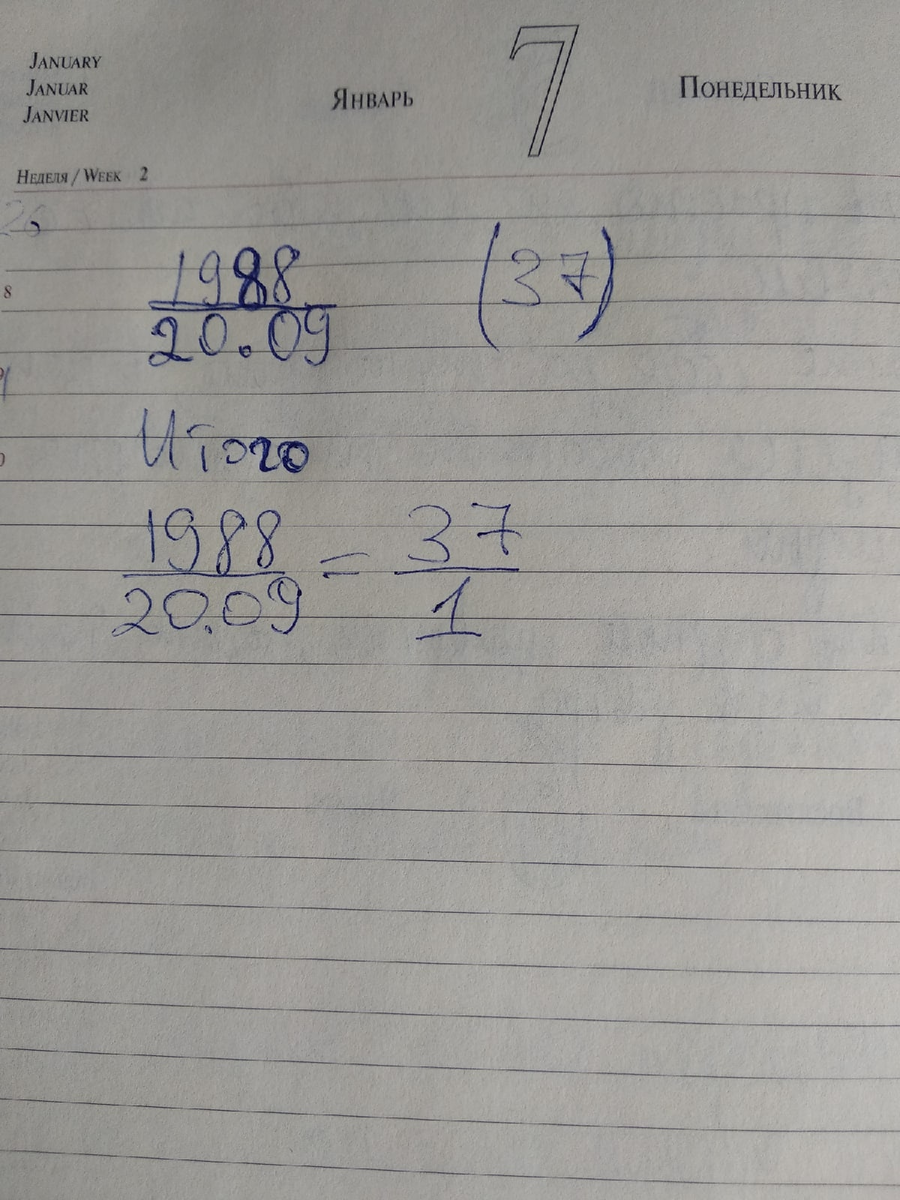 JANUARY
JANUAR
JANVIER
ЯНВАРЬ 7 ПОНЕДЕЛЬНИК
НЕДЕЛЯ / WEEK 2
8
1988 (37)
20.09
Итого
1988 = 37
20.09 1